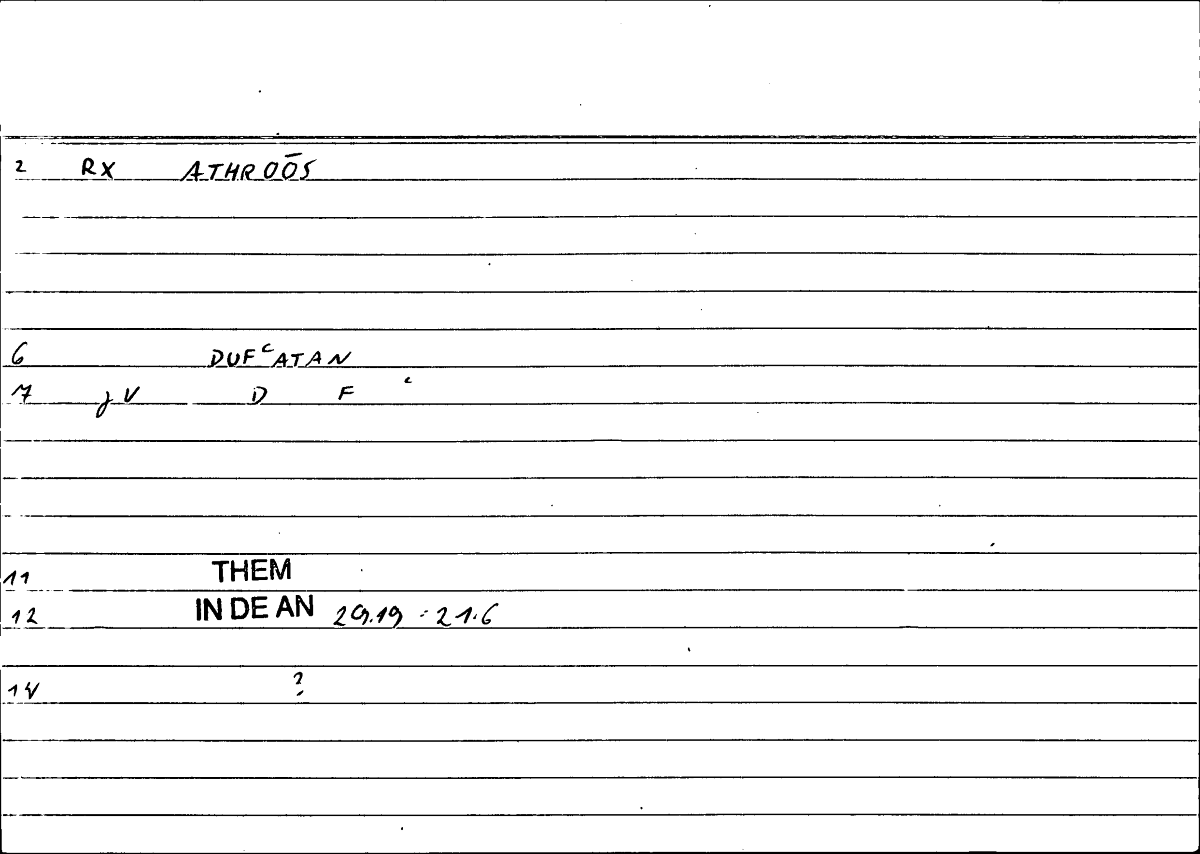 2 RX ATHROŌS
6 DUFʿATAN
7 γV D F ʿ
11 THEM
12 IN DE AN 29.19 - 21.6
14 ?